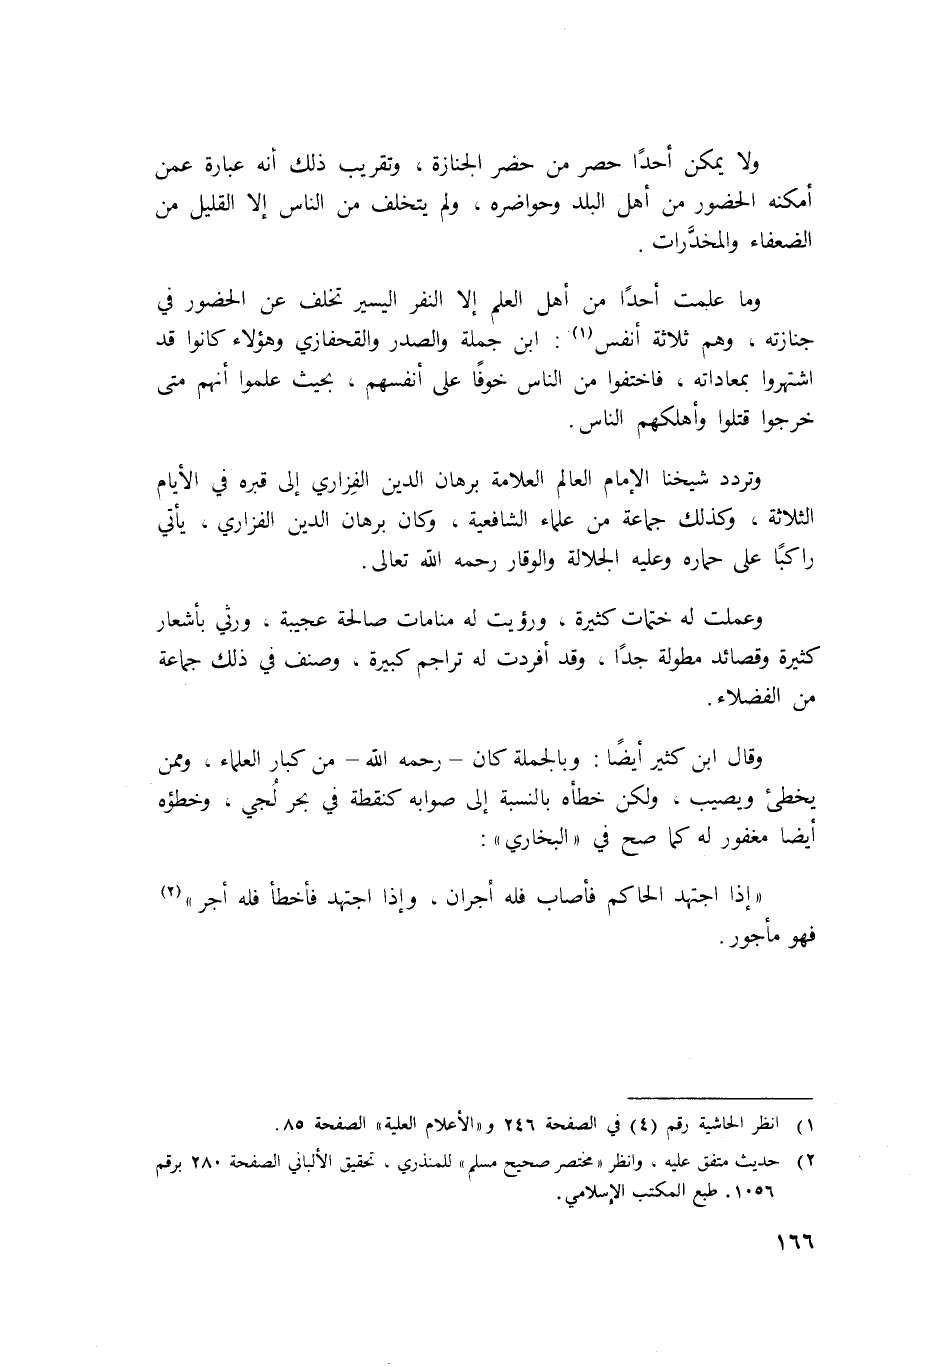 ولا يمكن أحدًا حصر من حضر الجنازة ، وتقريب ذلك أنه عبارة عمن
أمكنه الحضور من أهل البلد وحواضره ، ولم يتخلف من الناس إلا القليل من
الضعفاء والمخدَّرات .
وما علمت أحدًا من أهل العلم إلا النفر اليسير تخلف عن الحضور في
جنازته ، وهم ثلاثة أنفس(١) : ابن جملة والصدر والقحفازي وهؤلاء كانوا قد
اشتهروا بمعاداته ، فاختفوا من الناس خوفًا على أنفسهم ، بحيث علموا أنهم متى
خرجوا قتلوا وأهلكهم الناس .
وتردد شيخنا الإمام العالم العلامة برهان الدين الفِزاري إلى قبره في الأيام
الثلاثة ، وكذلك جماعة من علماء الشافعية ، وكان برهان الدين الفزاري ، يأتي
راكبًا على حماره وعليه الجلالة والوقار رحمه الله تعالى .
وعملت له ختمات كثيرة ، ورؤيت له منامات صالحة عجيبة ، ورثي بأشعار
كثيرة وقصائد مطولة جدًا ، وقد أفردت له تراجم كبيرة ، وصنف في ذلك جماعة
من الفضلاء .
وقال ابن كثير أيضًا : وبالجملة كان – رحمه الله – من كبار العلماء ، وممن
يخطئ ويصيب ، ولكن خطأه بالنسبة إلى صوابه كنقطة في بحر لُجي ، وخطؤه
أيضا مغفور له كما صح في «البخاري» :
« إذا اجتهد الحاكم فأصاب فله أجران ، وإذا اجتهد فأخطأ فله أجر »(٢)
فهو مأجور .
١) انظر الحاشية رقم (٤) في الصفحة ٢٤٦ و«الأعلام العلية» الصفحة ٨٥ .
٢) حديث متفق عليه ، وانظر «مختصر صحيح مسلم» للمنذري ، تحقيق الألباني الصفحة ٢٨٠ برقم
١٠٥٦ . طبع المكتب الإسلامي .
١٦٦